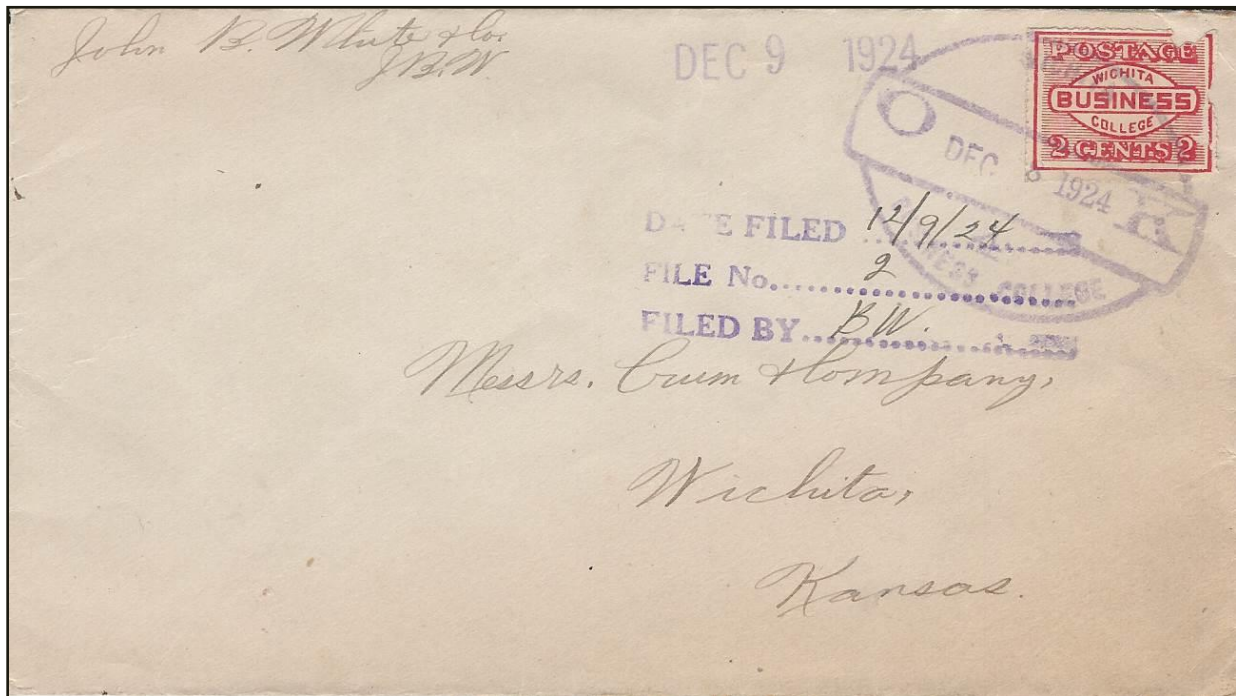 John B. White & Co.
J.B.W.
DEC 9 1924
POSTAGE
WICHITA
BUSINESS
COLLEGE
2 CENTS 2
O K
DEC 1924
BUSINESS COLLEGE
DATE FILED 12/9/24
FILE No. 2
FILED BY BW.
Messrs. Crum & Company,
Wichita,
Kansas.